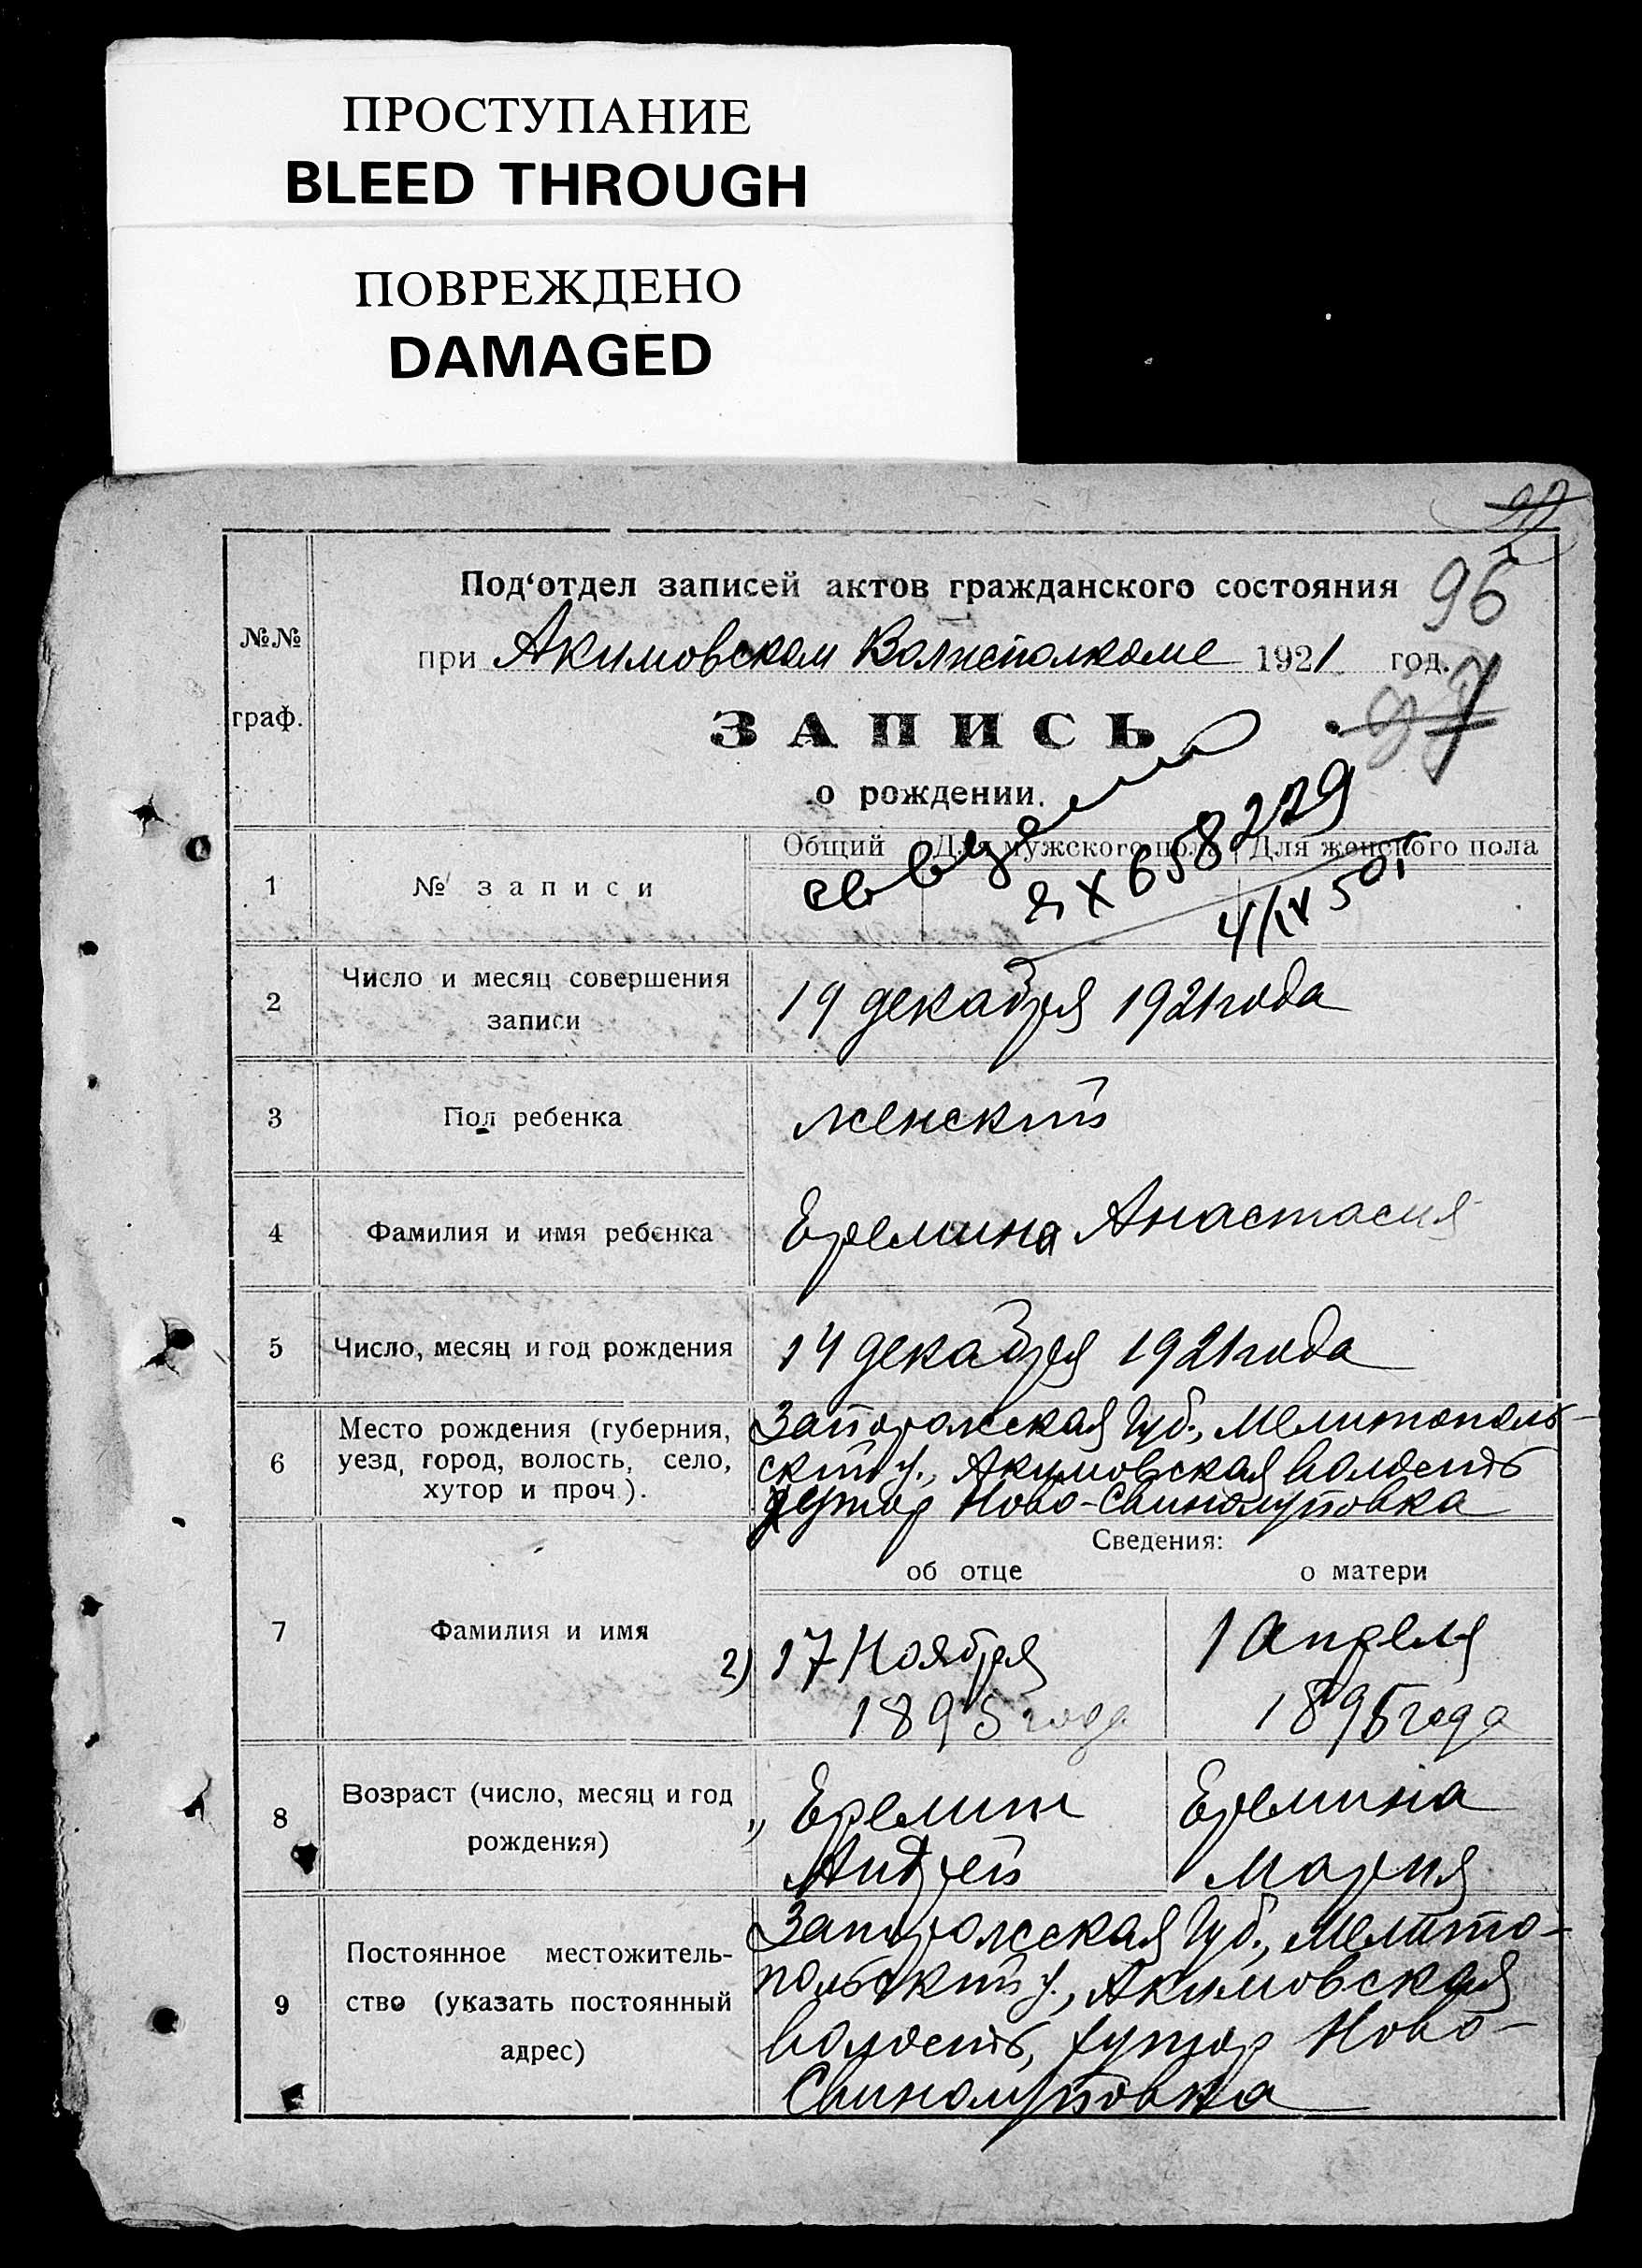 ПРОСТУПАНИЕ
BLEED THROUGH
ПОВРЕЖДЕНО
DAMAGED
96
Под‘отдел записей актов гражданского состояния
№№
граф.
при Акимовском Волисполкоме 1921 год.
ЗАПИСЬ
о рождении.
Общий Для мужского пола Для женского пола
1 № записи
ЯХ 658229
4/IV 50г
2 Число и месяц совершения
записи
19 декабря 1921 года
3 Пол ребенка женский
4 Фамилия и имя ребенка Еремина Анастасия
5 Число, месяц и год рождения 14 декабря 1921 года
6 Место рождения (губерния,
уезд, город, волость, село,
хутор и проч.).
Запорожская Губ., Мелитополь-
ский у., Акимовская волость
хутор Ново-
Сведения:
об отце о матери
7 Фамилия и имя
2) 17 Ноября
1895 года
1 Апреля
1895 года
8 Возраст (число, месяц и год
рождения)
Еремин
Андрей
Еремина
Мария
9 Постоянное местожитель-
ство (указать постоянный
адрес)
Запорожская Губ., Мелито-
польский у., Акимовская
волость, хутор Ново-